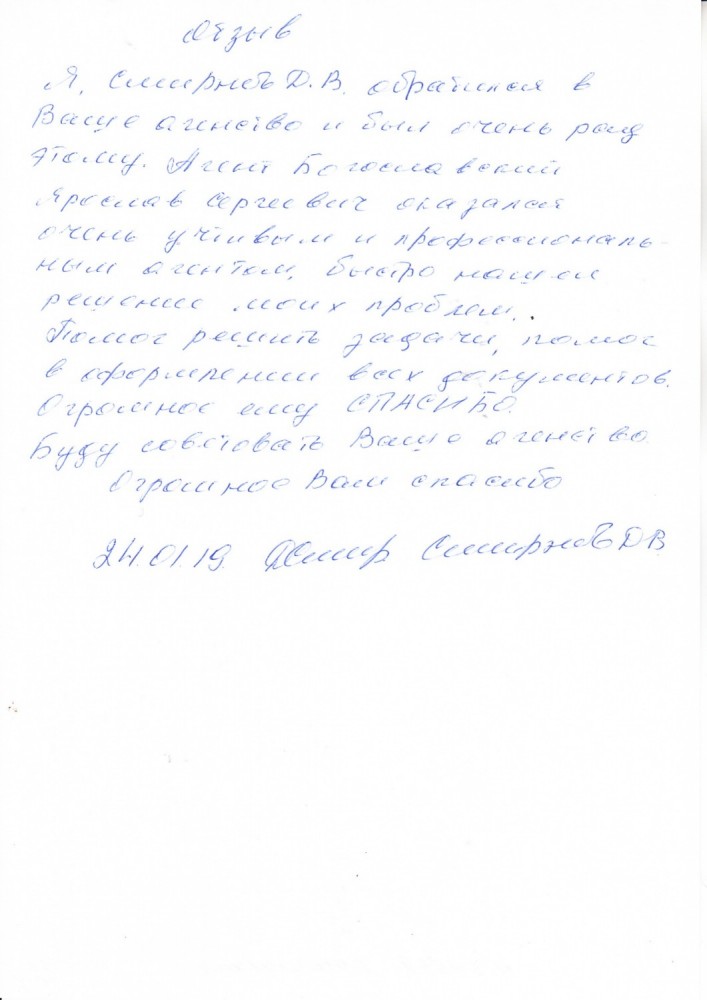 Отзыв
Я, Смирновъ Д.В. обратился в
Ваше агенство и был очень рад
этому. Агент Богославский
Ярослав Сергеевич оказался
очень учтивым и профессиональ-
ным агентом, быстро нашел
решение моих проблем.
Помог решить задачи, помог
в оформлении всех документов.
Огромное ему СПАСИБО.
Буду советовать Ваше агенство.
Огромное Вам спасибо
24.01.19. Смирновъ ДВ